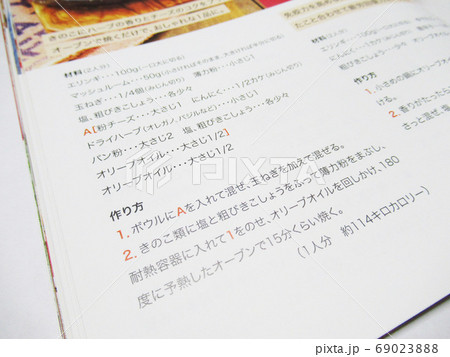 きのこにハーブの香りとチーズのコクを
オーブンで焼くだけで、おしゃれな1品に。
材料(2人分)
エリンギ・・・100g
マッシュルーム・・・50g
玉ねぎ・・・1/4個(みじんぎり) 薄力粉・・・小さじ1
塩、粗びきこしょう・・・各少々
A[粉チーズ・・・大さじ1 にんにく・・・1/2カケ(みじん切り)
ドライハーブ(オレガノ、バジルなど)・・・小さじ1
パン粉・・・大さじ2 塩、粗びきこしょう・・・各少々
オリーブオイル・・・大さじ1/2]
オリーブオイル・・・大さじ1/2
作り方
1. ボウルにAを入れて混ぜ、玉ねぎを加えて混ぜる。
2. きのこ類に塩と粗びきこしょうをふって薄力粉をまぶし、
耐熱容器に入れて1をのせ、オリーブオイルを回しかけ、180
度に予熱したオーブンで15分くらい焼く。
(1人分 約114キロカロリー)
材料(2人分)
エリンギ・・・
にんにく・・・1カケ(みじん切り)
塩、粗びきこしょう・・・各少々
作り方
1. 小さめの鍋にオリーブオイ
ける。
2. 香りがたったら
さっと混ぜ、塩
PIXTA
pixta.jp - 69023888